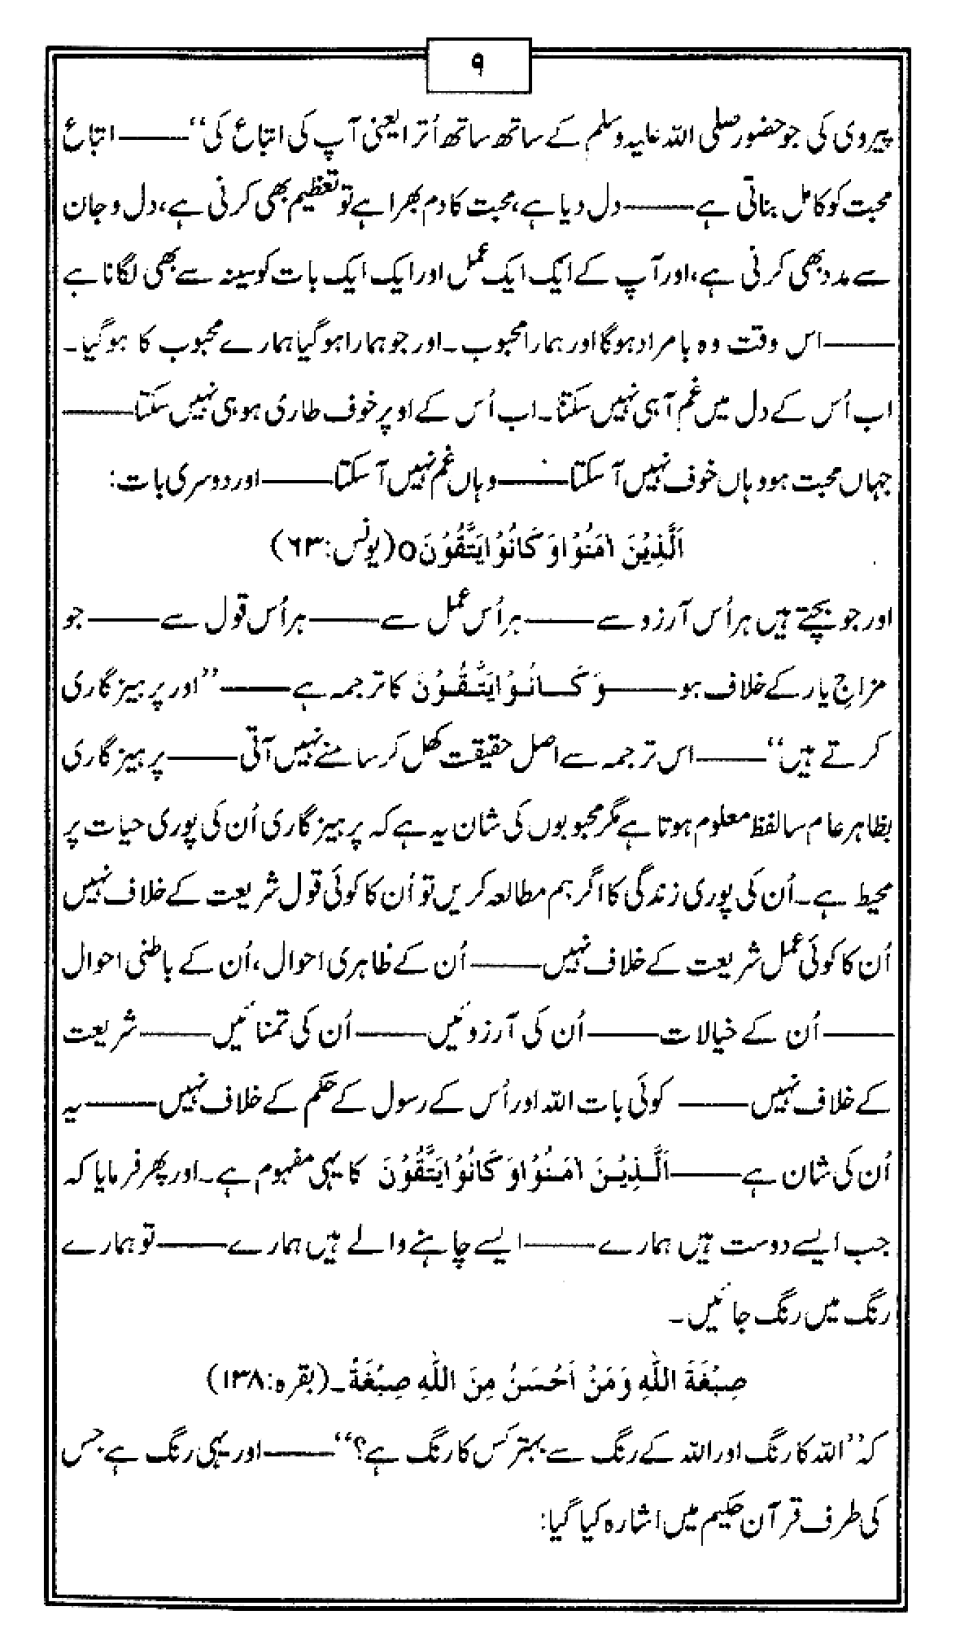 ۹
پیروی کی جو حضور صلی اللہ علیہ وسلم کے ساتھ ساتھ اُترا یعنی آپ کی اتباع کی‘‘ــــــ اتباع
محبت کو کامل بناتی ہے ــــــ دل دیا ہے، محبت کا دم بھرا ہے تو تعظیم بھی کرنی ہے، دل و جان
سے مدد بھی کرنی ہے، اور آپ کے ایک ایک عمل اور ایک ایک بات کو سینہ سے بھی لگانا ہے
ــــــ اس وقت وہ بامراد ہوگا اور ہمارا محبوب۔ اور جو ہمارا ہوگیا ہمارے محبوب کا ہوگیا۔
اب اُس کے دل میں غم آ ہی نہیں سکتا۔ اب اُس کے اوپر خوف طاری ہو ہی نہیں سکتا ــــــ
جہاں محبت ہو وہاں خوف نہیں آ سکتا ــــــ وہاں غم نہیں آ سکتا ــــــ اور دوسری بات:
اَلَّذِیْنَ اٰمَنُوْا وَ کَانُوْا یَتَّقُوْنَ ۝ (یونس: ۶۳)
اور جو بچتے ہیں ہر اُس آرزو سے ــــــ ہر اُس عمل سے ــــــ ہر اُس قول سے ــــــ جو
مزاجِ یار کے خلاف ہو ــــــ وَ کَانُوْا یَتَّقُوْنَ کا ترجمہ ہے ــــــ ’’اور پرہیزگاری
کرتے ہیں‘‘ ــــــ اس ترجمہ سے اصل حقیقت کھل کر سامنے نہیں آتی ــــــ پرہیزگاری
بظاہر عام سا لفظ معلوم ہوتا ہے مگر محبوبوں کی شان یہ ہے کہ پرہیزگاری اُن کی پوری حیات پر
محیط ہے۔ اُن کی پوری زندگی کا اگر ہم مطالعہ کریں تو اُن کا کوئی قول شریعت کے خلاف نہیں
اُن کا کوئی عمل شریعت کے خلاف نہیں ــــــ اُن کے ظاہری احوال، اُن کے باطنی احوال
ــــــ اُن کے خیالات ــــــ اُن کی آرزوئیں ــــــ اُن کی تمنائیں ــــــ شریعت
کے خلاف نہیں ــــــ کوئی بات اللہ اور اُس کے رسول کے حکم کے خلاف نہیں ــــــ یہ
اُن کی شان ہے ــــــ اَلَّذِیْنَ اٰمَنُوْا وَ کَانُوْا یَتَّقُوْنَ کا یہی مفہوم ہے۔ اور پھر فرمایا کہ
جب ایسے دوست ہیں ہمارے ــــــ ایسے چاہنے والے ہیں ہمارے ــــــ تو ہمارے
رنگ میں رنگ جائیں۔
صِبْغَةَ اللّٰهِ وَ مَنْ اَحْسَنُ مِنَ اللّٰهِ صِبْغَةً۔ (بقرہ: ۱۳۸)
کہ ’’اللہ کا رنگ اور اللہ کے رنگ سے بہتر کس کا رنگ ہے؟‘‘ ــــــ اور یہی رنگ ہے جس
کی طرف قرآن حکیم میں اشارہ کیا گیا: